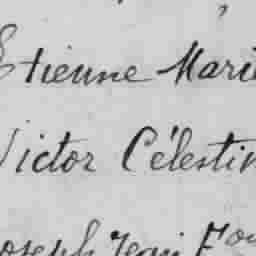 Etienne Marie
Victor Célestin
Joseph Jean